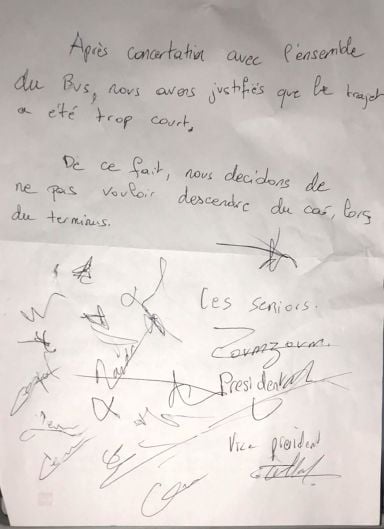 Après concertation avec l'ensemble
du Bus, nous avons justifiés que le trajet
a été trop court.
De ce fait, nous decidons de
ne pas vouloir descendre du car, lors
du terminus.
Les seniors.
Zoumzoum.
President
Vice president